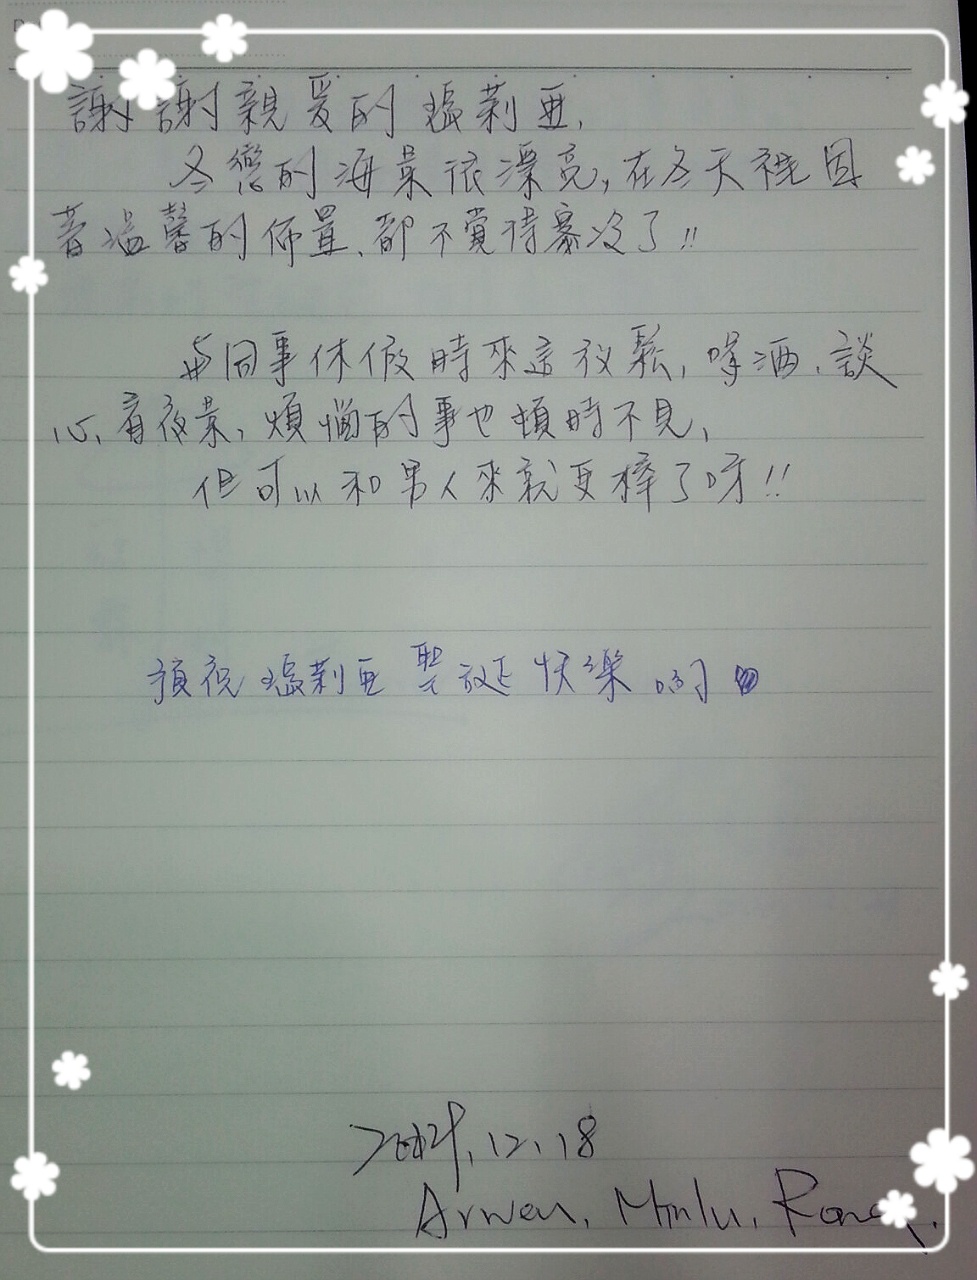 謝謝親愛的瑪莉亞,
冬戀的海景依漂亮,在冬天裡因
著溫馨的佈置、都不覺得寒冷了!!
與同事休假時來這放鬆,喝酒、談
心、看夜景,煩惱的事也頓時不見,
但可以和男人來就更棒了呀!!
預祝瑪莉亞聖誕快樂喲
12.18
Arwen, Minlu,